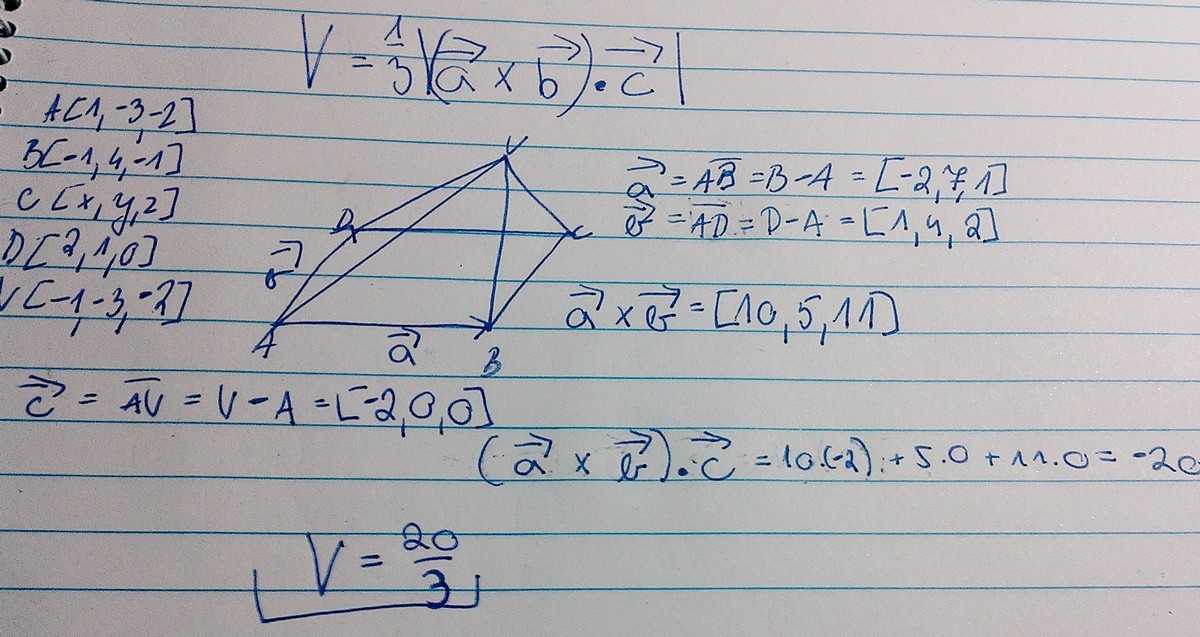 V = 1/3 |(a⃗ x b⃗) · c⃗|
A[1,-3,-2]
B[-1,4,-1]
C[x,y,z]
D[2,1,0]
V[-1,-3,-2]
V
D
C
b⃗
A
a⃗
B
a⃗ = AB = B-A = [-2,7,1]
b⃗ = AD = D-A = [1,4,2]
a⃗ x b⃗ = [10,5,11]
c⃗ = AV = V-A = [-2,0,0]
(a⃗ x b⃗) · c⃗ = 10·(-2) + 5·0 + 11·0 = -20
V = 20/3